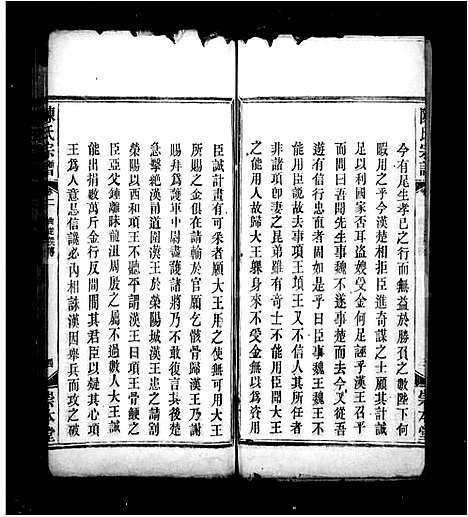 今有尾生孝己之行而無益於勝負之數陛下何
暇用之乎今漢楚相拒臣進奇謀之士顧其計誠
足以利國家否耳盜嫂受金又何足疑乎漢王召平
而問曰吾聞先生事魏不遂事楚而去今又從吾
遊有信行意者固如是乎曰臣事魏王魏王不
用臣說故去事項王項王不信人其所任者
非諸項即妻之昆弟雖有奇士不能用臣聞漢王
之能用人故歸大王臝身來不受金無以為資用
陳氏宗譜
崇本堂
臣誠計畫有可采者願大王用之使無可用大王
所賜之金俱在請輸於官願乞骸骨歸漢王乃謝厚
賜拜為護軍中尉盡護諸將乃不敢復言其後楚
急擊絕漢甬道圍漢王於滎陽城漢王患之請割
滎陽以西和項王不聽平謂漢王曰項王骨鯁之
臣亞父鍾離昧龍沮周殷之屬不過數人大王誠
能出捐數萬斤金行反間間其君臣以疑其心項
王為人意忌信讒必內相誅漢因舉兵而攻之破